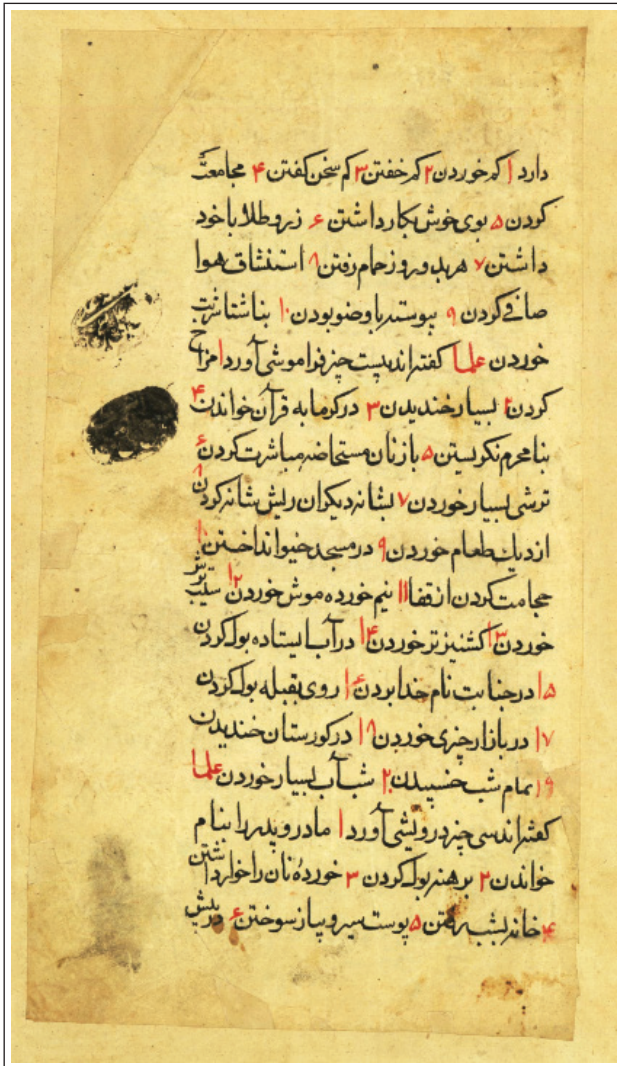 دارد ۱ کم خوردن ۲ کم خفتن ۳ کم سخن گفتن ۴ مجامعت
کردن ۵ بوی خوش بکار داشتن ۶ زر و طلا با خود
داشتن ۷ هر بد و روز حمام رفتن ۸ استنشاق هوا
صافی کردن ۹ پیوسته با وضو بودن ۱۰ بناشتا شربت
خوردن علما گفته‌اند بیست چیز فراموشی آورد ۱ مزاح
کردن ۲ بسیار خندیدن ۳ در کرمابه قرآن خواندن ۴
بنامحرم نکریستن ۵ با زنان مستحاضه مباشرت کردن ۶
ترشی بسیار خوردن ۷ بشانه دیکران ریش شانه کردن ۸
از دیک طعام خوردن ۹ در مسجد خیو انداختن ۱۰
حجامت کردن از قفا ۱۱ نیم خورده موش خوردن ۱۲ سیب ترش
خوردن ۱۳ کشنیز تر خوردن ۱۴ در آب ایستاده بول کردن
۱۵ در جنابت نام خدا بردن ۱۶ روی بقبله بول کردن
۱۷ در بازار چیزی خوردن ۱۸ در کورستان خندیدن
۱۹ تمام شب خسپیدن ۲۰ شب آب بسیار خوردن علما
گفته‌اند سی چیز درویشی آورد ۱ مادر و پدر را بنام
خواندن ۲ برهنه بول کردن ۳ خوردهٔ نان را خوار داشتن
۴ خانه بشب رفتن ۵ پوست سیر و پیاز سوختن ۶ در پیش